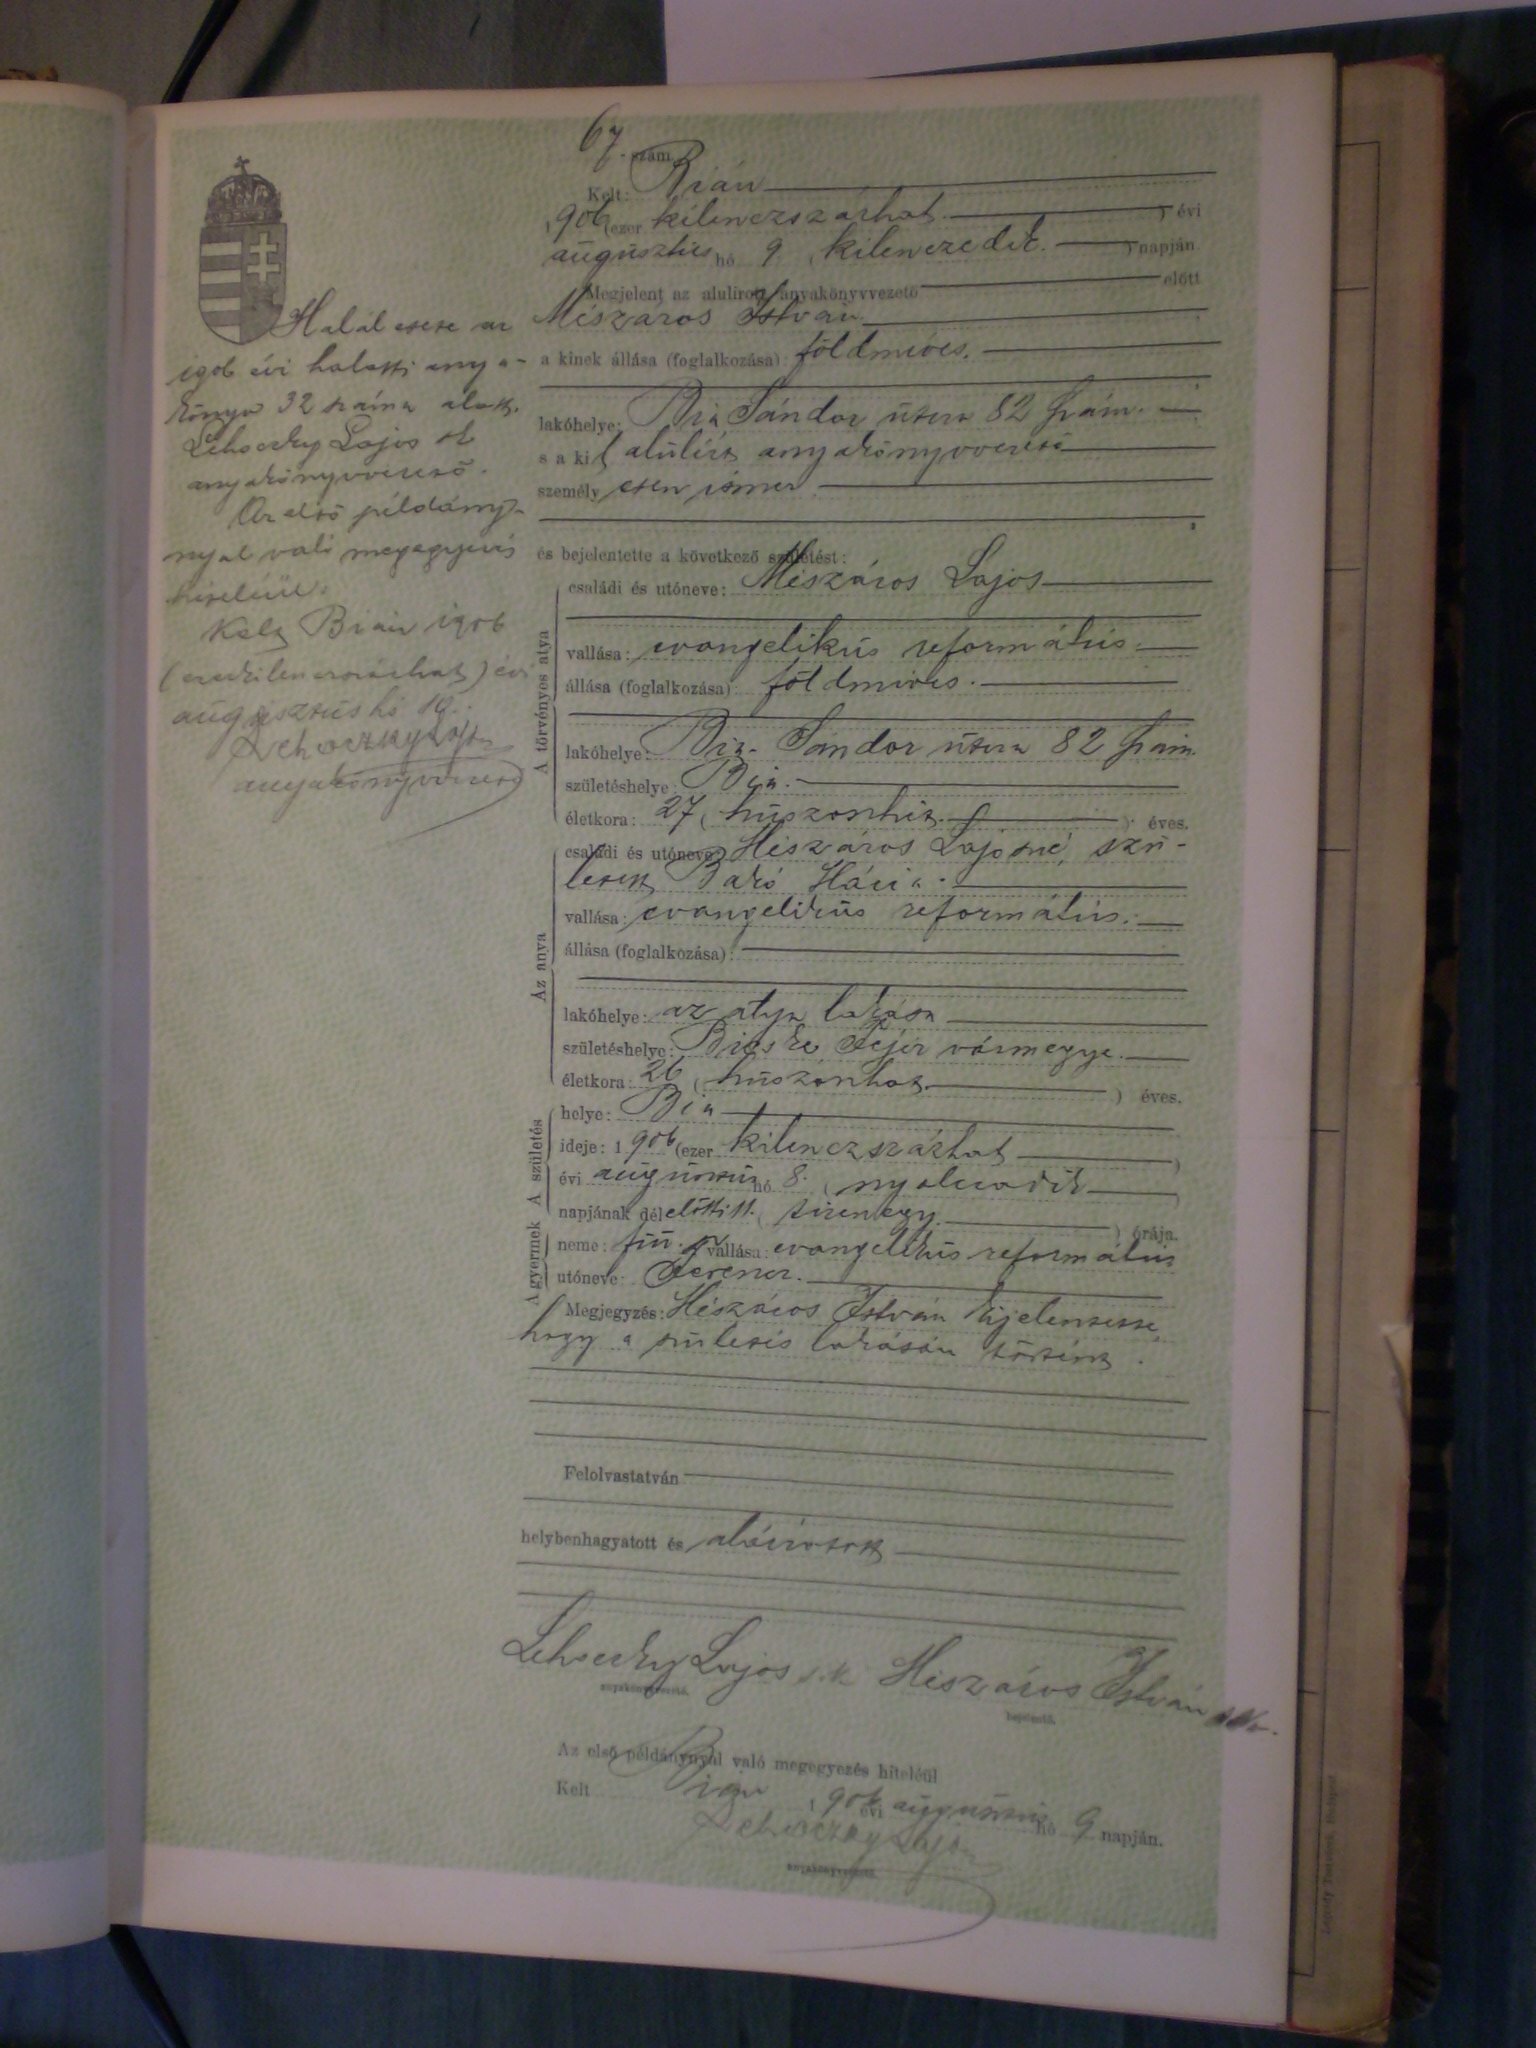 67. szám.
Kelt: Bián
1906 (ezer kilenczszázhat ) évi
augusztus hó 9 (kilenczedik ) napján
Megjelent az alulírott anyakönyvvezető előtt
Mészáros István
a kinek állása (foglalkozása): földmíves.
lakóhelye: Bia Sándor utcza 82 szám.
s a kit alulírt anyakönyvvezető
személyesen ismer.
és bejelentette a következő születést:
A törvényes atya
családi és utóneve: Mészáros Lajos
vallása: evangelikus református.
állása (foglalkozása): földmíves.
lakóhelye: Bia. Sándor utcza 82 szám.
születéshelye: Bia.
életkora: 27 (huszonhét. ) éves.
Az anya
családi és utóneve: Mészáros Lajosné, szü-
letett Bakó Mária.
vallása: evangelikus református.
állása (foglalkozása):
lakóhelye: az atya lakása
születéshelye: Bicske Fejér vármegye.
életkora: 26 (huszonhat. ) éves.
A születés
helye: Bia
ideje: 1906 (ezer kilenczszázhat )
évi augusztus hó 8. (nyolczadik )
napjának délelőtti 11. (tizenegy. ) órája.
A gyermek
neme: fiú. vallása: evangelikus református
utóneve: Ferencz.
Megjegyzés: Mészáros István kijelentette,
hogy a születés lakásán történt.
Felolvastatván
helybenhagyatott és aláíratott
Lehoczky Lajos s.k. Mészáros István s.k.
anyakönyvvezető. bejelentő.
Az első példánynyal való megegyezés hiteléül
Kelt Bián 1906 évi augusztus hó 9 napján.
Lehoczky Lajos
anyakönyvvezető.
Halál esete az
1906 évi halotti anya-
könyv 32 száma alatt.
Lehoczky Lajos sk
anyakönyvvezető.
Az első példány-
nyal való megegyezés
hiteléül.
Kelt Bián 1906
(ezerkilenczszázhat) évi
augusztus hó
Lehoczky Lajos
anyakönyvvezető